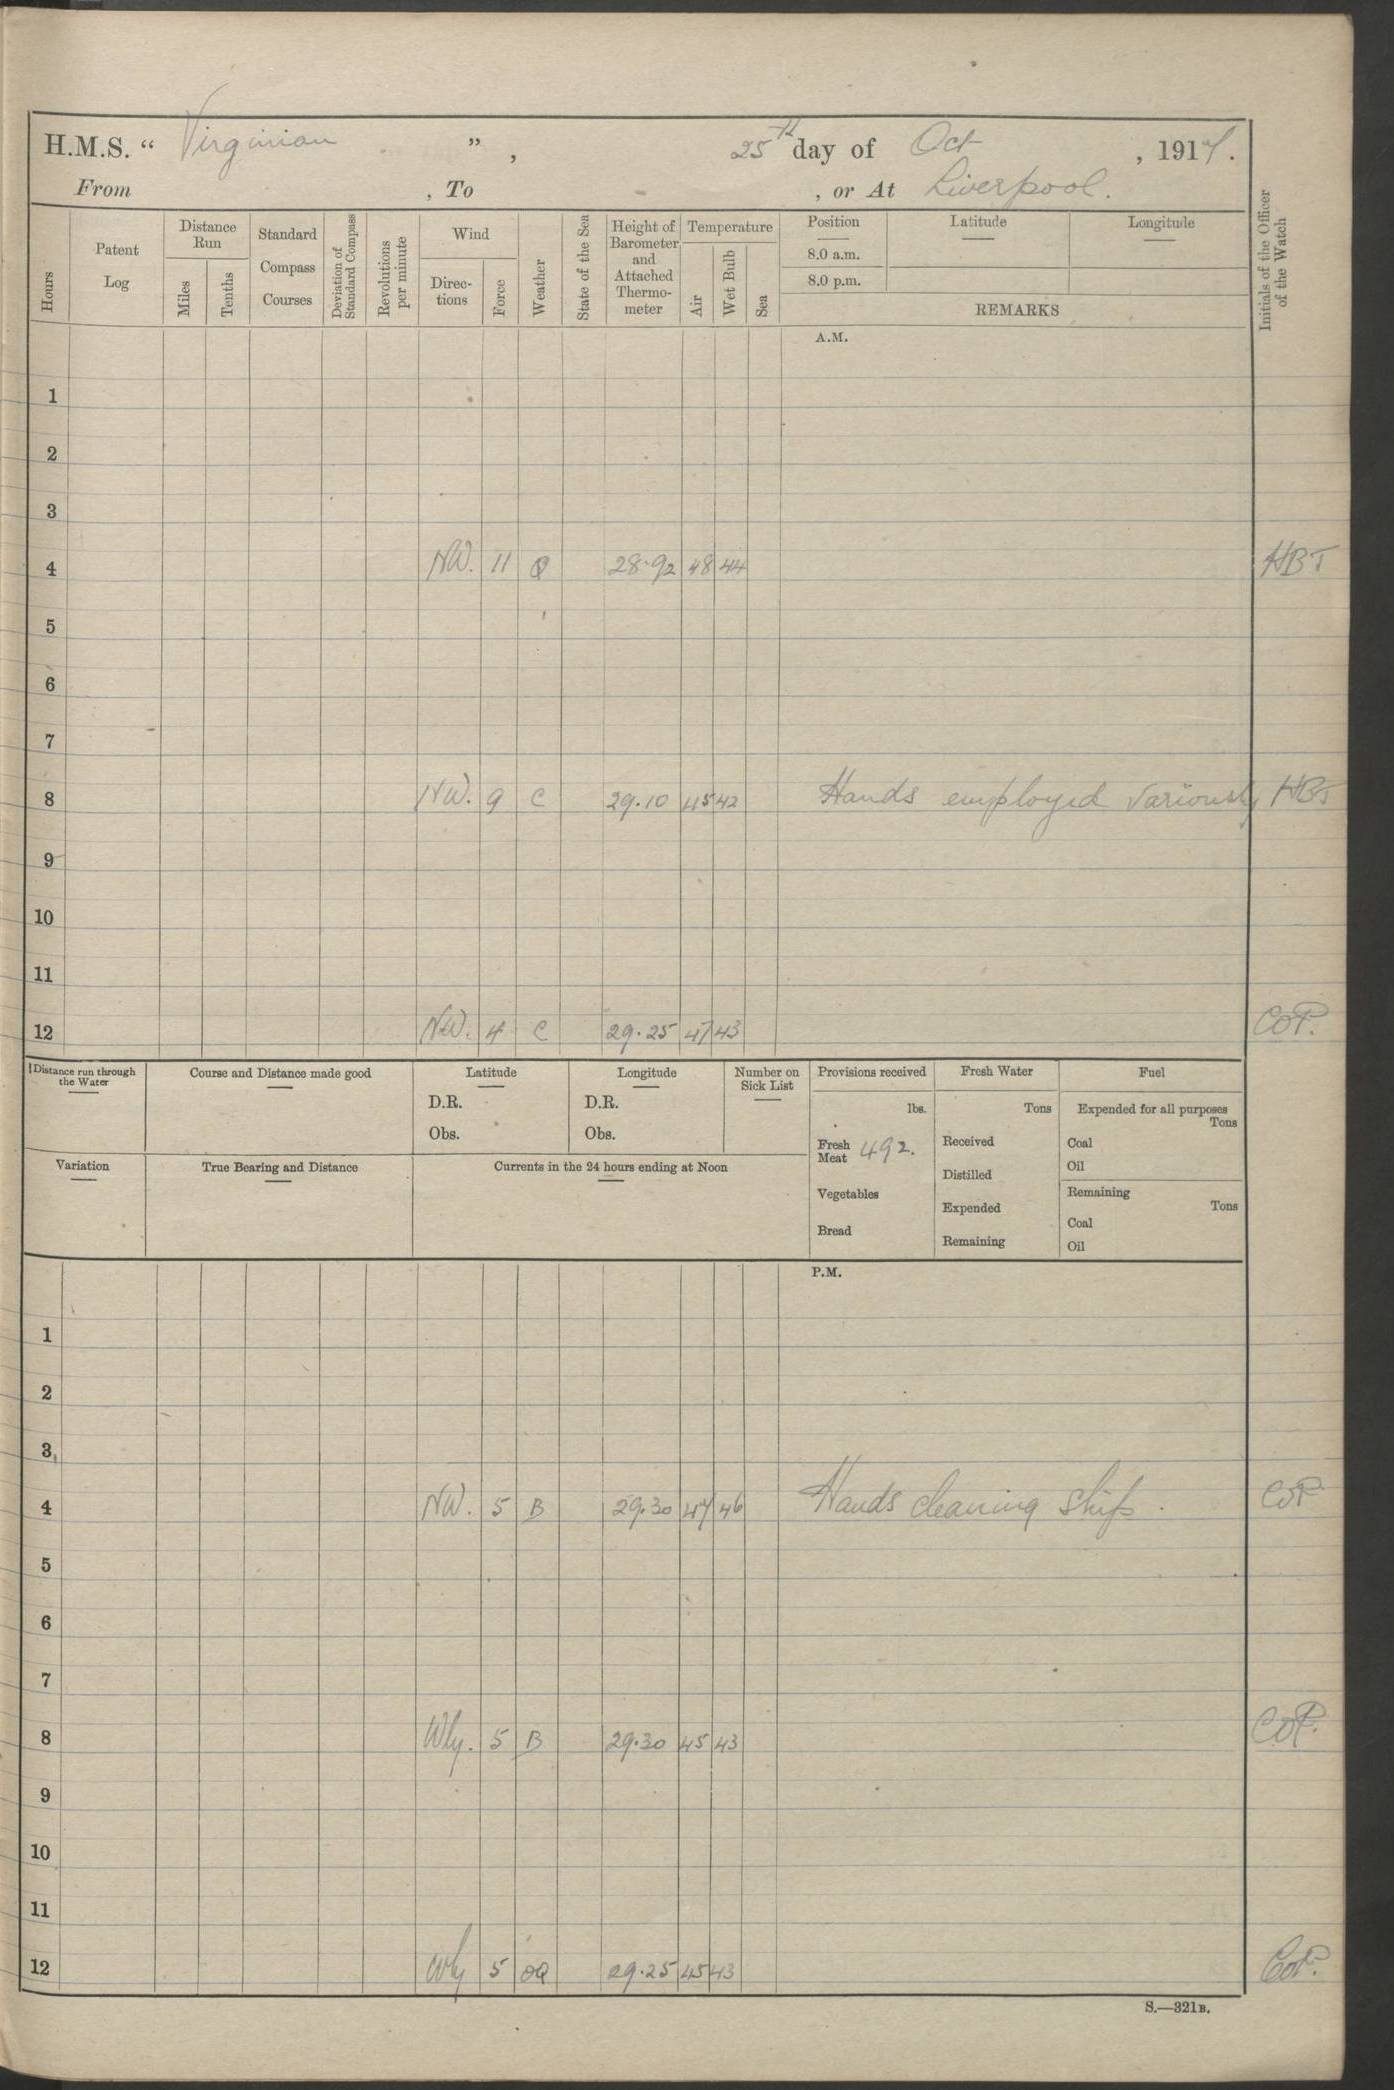 H.M.S. “ Virginian ” , 25th day of Oct , 1917.
From , To , or At Liverpool.
Hours
Patent Log
Distance Run
Miles
Tenths
Standard Compass Courses
Deviation of Standard Compass
Revolutions per minute
Wind
Direc-tions
Force
Weather
State of the Sea
Height of Barometer and Attached Thermo-meter
Temperature
Air
Wet Bulb
Sea
Position
8.0 a.m.
8.0 p.m.
Latitude
Longitude
REMARKS
Initials of the Officer of the Watch
A.M.
1
2
3
4 NW. 11 Q 28.92 48 44 HBT
5
6
7
8 NW. 9 C 29.10 45 42 Hands employed variously HBT
9
10
11
12 NW. 4 C 29.25 47 43 COP.
Distance run through the Water
Course and Distance made good
Latitude
D.R.
Obs.
Longitude
D.R.
Obs.
Number on Sick List
Provisions received
lbs.
Fresh Meat 492.
Vegetables
Bread
Fresh Water
Tons
Received
Distilled
Expended
Remaining
Fuel
Expended for all purposes
Tons
Coal
Oil
Remaining
Tons
Coal
Oil
Variation
True Bearing and Distance
Currents in the 24 hours ending at Noon
P.M.
1
2
3
4 NW. 5 B 29.30 47 46 Hands cleaning ship. COP
5
6
7
8 Wly. 5 B 29.30 45 43 COP.
9
10
11
12 Wly 5 OQ 29.25 45 43 COP.
S.—321B.